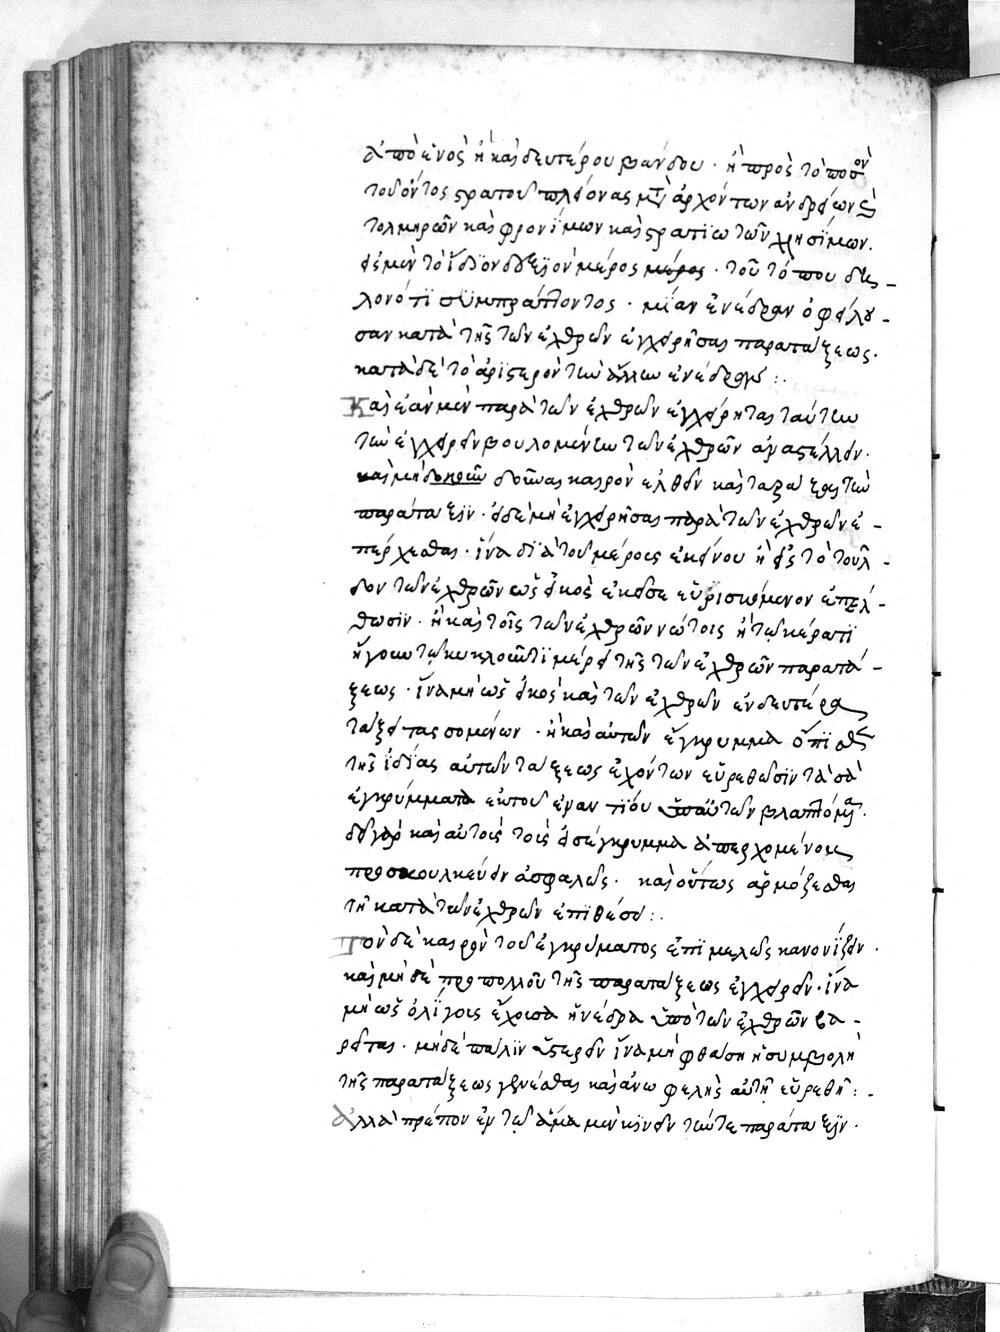 ἀπὸ ἑνὸς ἢ καὶ δευτέρου βάνδου · ἢ πρὸς τὸ ποσὸν
τοῦ ὄντος στρατοῦ πλείονας μετὰ ἀρχόντων ἀνδρείων καὶ
τολμηρῶν καὶ φρονίμων καὶ στρατιωτῶν χρησίμων.
εἰς μὲν τὸ ἴδιον δεξιὸν μέρος μέρος · τοῦ τόπου δη-
λονότι συμπράττοντος · μίαν ἐνέδραν ὀφείλου-
σαν κατὰ τῆς τῶν ἐχθρῶν ἐγχειρῆσαι παρατάξεως.
κατὰ δὲ τὸ ἀριστερὸν τὴν ἄλλην ἐνέδραν :.
Καὶ ἐὰν μὲν παρὰ τῶν ἐχθρῶν ἐγχείρηται ταύτην
τὴν ἐγχειρεῖν βουλομένην τῶν ἐχθρῶν ἀναστέλλειν.
καὶ μὴ δοκεῖν δοῦναι καιρὸν ἐλθεῖν καὶ ταράξαι τὴν
παράταξιν · εἰ δὲ μὴ ἐγχειρῆσαι παρὰ τῶν ἐχθρῶν ἐ-
πέρχεσθαι · ἵνα διὰ τοῦ μέρους ἐκείνου ἢ εἰς τὸ τοῦλ-
δον τῶν ἐχθρῶν ὡς εἰκὸς ἐκεῖσε εὑρισκόμενον ἐπέλ-
θωσιν · ἢ καὶ τοῖς τῶν ἐχθρῶν νώτοις ἢ τῷ κέρατι
ἤγουν τῷ κυκλοῦντι μέρει τῆς τῶν ἐχθρῶν παρατά-
ξεως · ἵνα μὴ ὡς εἰκὸς καὶ τῶν ἐχθρῶν ἐν δευτέρα
τάξει τασσομένων · ἢ καὶ αὐτῶν ἔγκρυμμα ὄπισθεν
τῆς ἰδίας αὐτῶν τάξεως ἐχόντων εὑρεθῶσιν τὰ σὰ
ἐγκρύμματα ἐκ τοῦ ἐναντίου ὑπ' αὐτῶν βλαπτόμενα.
δεῖ γὰρ καὶ αὐτοὺς τοὺς εἰς ἔγκρυμμα ἀπερχομένους
προσκουλκεύειν ἀσφαλῶς · καὶ οὕτως ἁρμόζεσθαι
τῇ κατὰ τῶν ἐχθρῶν ἐπιθέσει :.
Τὸν δὲ καιρὸν τοῦ ἐγκρύματος ἐπιμελῶς κανονίζειν ·
καὶ μηδὲ πρὸ πολλοῦ τῆς παρατάξεως ἐγχειρεῖν · ἵνα
μὴ ὡς ὀλίγοις ἔχουσα ἡ ἐνέδρα ὑπὸ τῶν ἐχθρῶν βα-
ρεῖται · μηδὲ πάλιν ὕστερον ἵνα μὴ φθάση ἡ συμβολὴ
τῆς παρατάξεως γενέσθαι καὶ ἀνωφελὴς αὐτὴ εὑρεθῆ :.
Ἀλλὰ πρέπον ἐν τῷ ἅμα μὲν κινεῖν τήν τε παράταξιν ·